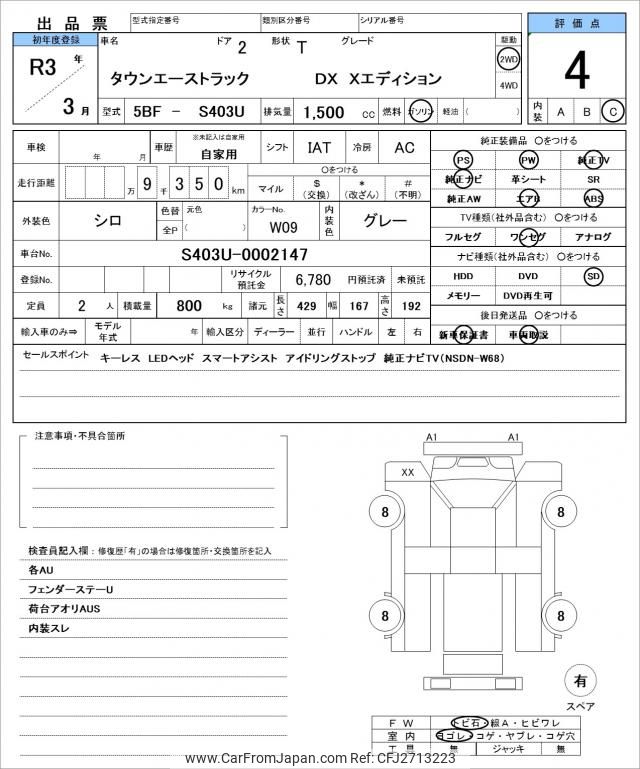 出品票
型式指定番号 類別区分番号 シリアル番号
評価点
初年度登録
R3 年
3 月
車名 ドア 2 形状 T グレード
タウンエーストラック DX Xエディション
駆動
2WD
4WD
4
型式 5BF - S403U 排気量 1,500 cc 燃料 ガソリン 軽油 ( )
内装 A B C
車検 年 月 車歴 ※未記入は自家用 自家用 シフト IAT 冷房 AC
走行距離 万 9 千 3 5 0 km
○をつける
マイル $ (交換) * (改ざん) # (不明)
外装色 シロ 色替 全P 元色 ( ) カラーNo. W09 内装色 グレー
車台No. S403U-0002147
登録No. リサイクル預託金 6,780 円預託済 未預託
定員 2 人 積載量 800 kg 諸元 長さ 429 幅 167 高さ 192
輸入車のみ⇒ モデル年式 年 輸入区分 ディーラー 並行 ハンドル 左 右
純正装備品 ○をつける
PS PW 純正TV
純正ナビ 革シート SR
純正AW エアB ABS
TV種類(社外品含む) ○をつける
フルセグ ワンセグ アナログ
ナビ種類(社外品含む) ○をつける
HDD DVD SD
メモリー DVD再生可
後日発送品 ○をつける
新車保証書 車両取説
セールスポイント キーレス LEDヘッド スマートアシスト アイドリングストップ 純正ナビTV(NSDN-W68)
注意事項・不具合箇所
検査員記入欄：修復歴「有」の場合は修復箇所・交換箇所を記入
各AU
フェンダーステーU
荷台アオリAUS
内装スレ
A1 A1
XX
8 8
8 8
有
スペア
FW トビ石・線A・ヒビワレ
室内 ヨゴレ・コゲ・ヤブレ・コゲ穴
工具 無 ジャッキ 無
www.CarFromJapan.com Ref: CFJ2713223